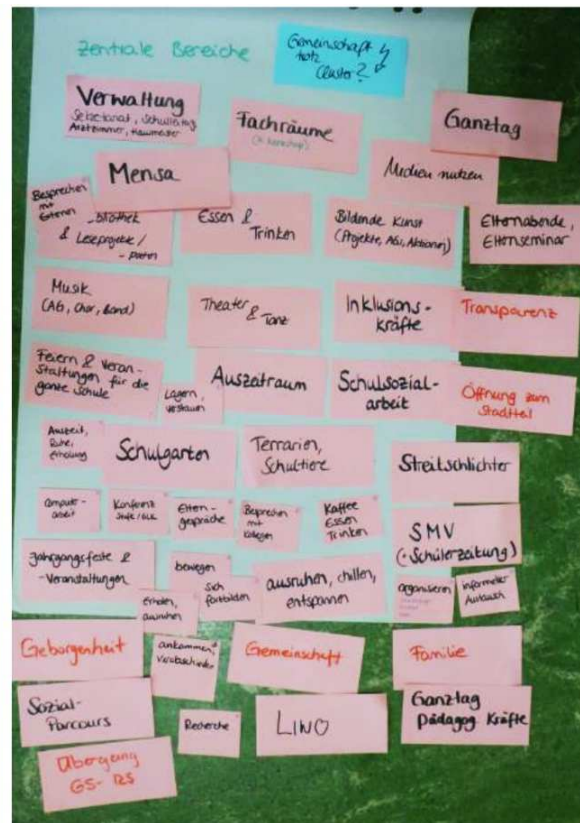 Zentrale Bereiche
Gemeinschaft
trotz
Cluster?
Verwaltung
Sekretariat, Schulleitung
Arztzimmer, Hausmeister
Fachräume
Ganztag
Mensa
Medien nutzen
Besprechen
mit
Externen
-bliothek
& Leseprojekte/
-paten
Essen &
Trinken
Bildende Kunst
(Projekte, AGs, Aktionen)
Elternabende,
Elternseminar
Musik
(AG, Chor, Band)
Theater
& Tanz
Inklusions-
kräfte
Transparenz
Feiern & Veran-
staltungen für die
ganze Schule
Lagern,
verstauen
Auszeitraum
Schulsozial-
arbeit
Öffnung zum
Stadtteil
Auszeit,
Ruhe,
Erholung
Schulgarten
Terrarien,
Schultiere
Streitschlichter
Computer-
arbeit
Konferenz
Stufe/GLK
Eltern-
gespräche
Besprechen
mit
Kollegen
Kaffee
Essen
Trinken
SMV
(+Schülerzeitung)
Jahrgangsfeste &
-Veranstaltungen
bewegen
Sich
fortbilden
ausruhen, chillen,
entspannen
organisieren
informeller
Austausch
Erholen,
ausruhen
Geborgenheit
ankommen,
Verabschieden
Gemeinschaft
Familie
Sozial-
Parcours
Recherche
LINO
Ganztag
Pädagog Kräfte
Übergang
GS-RS